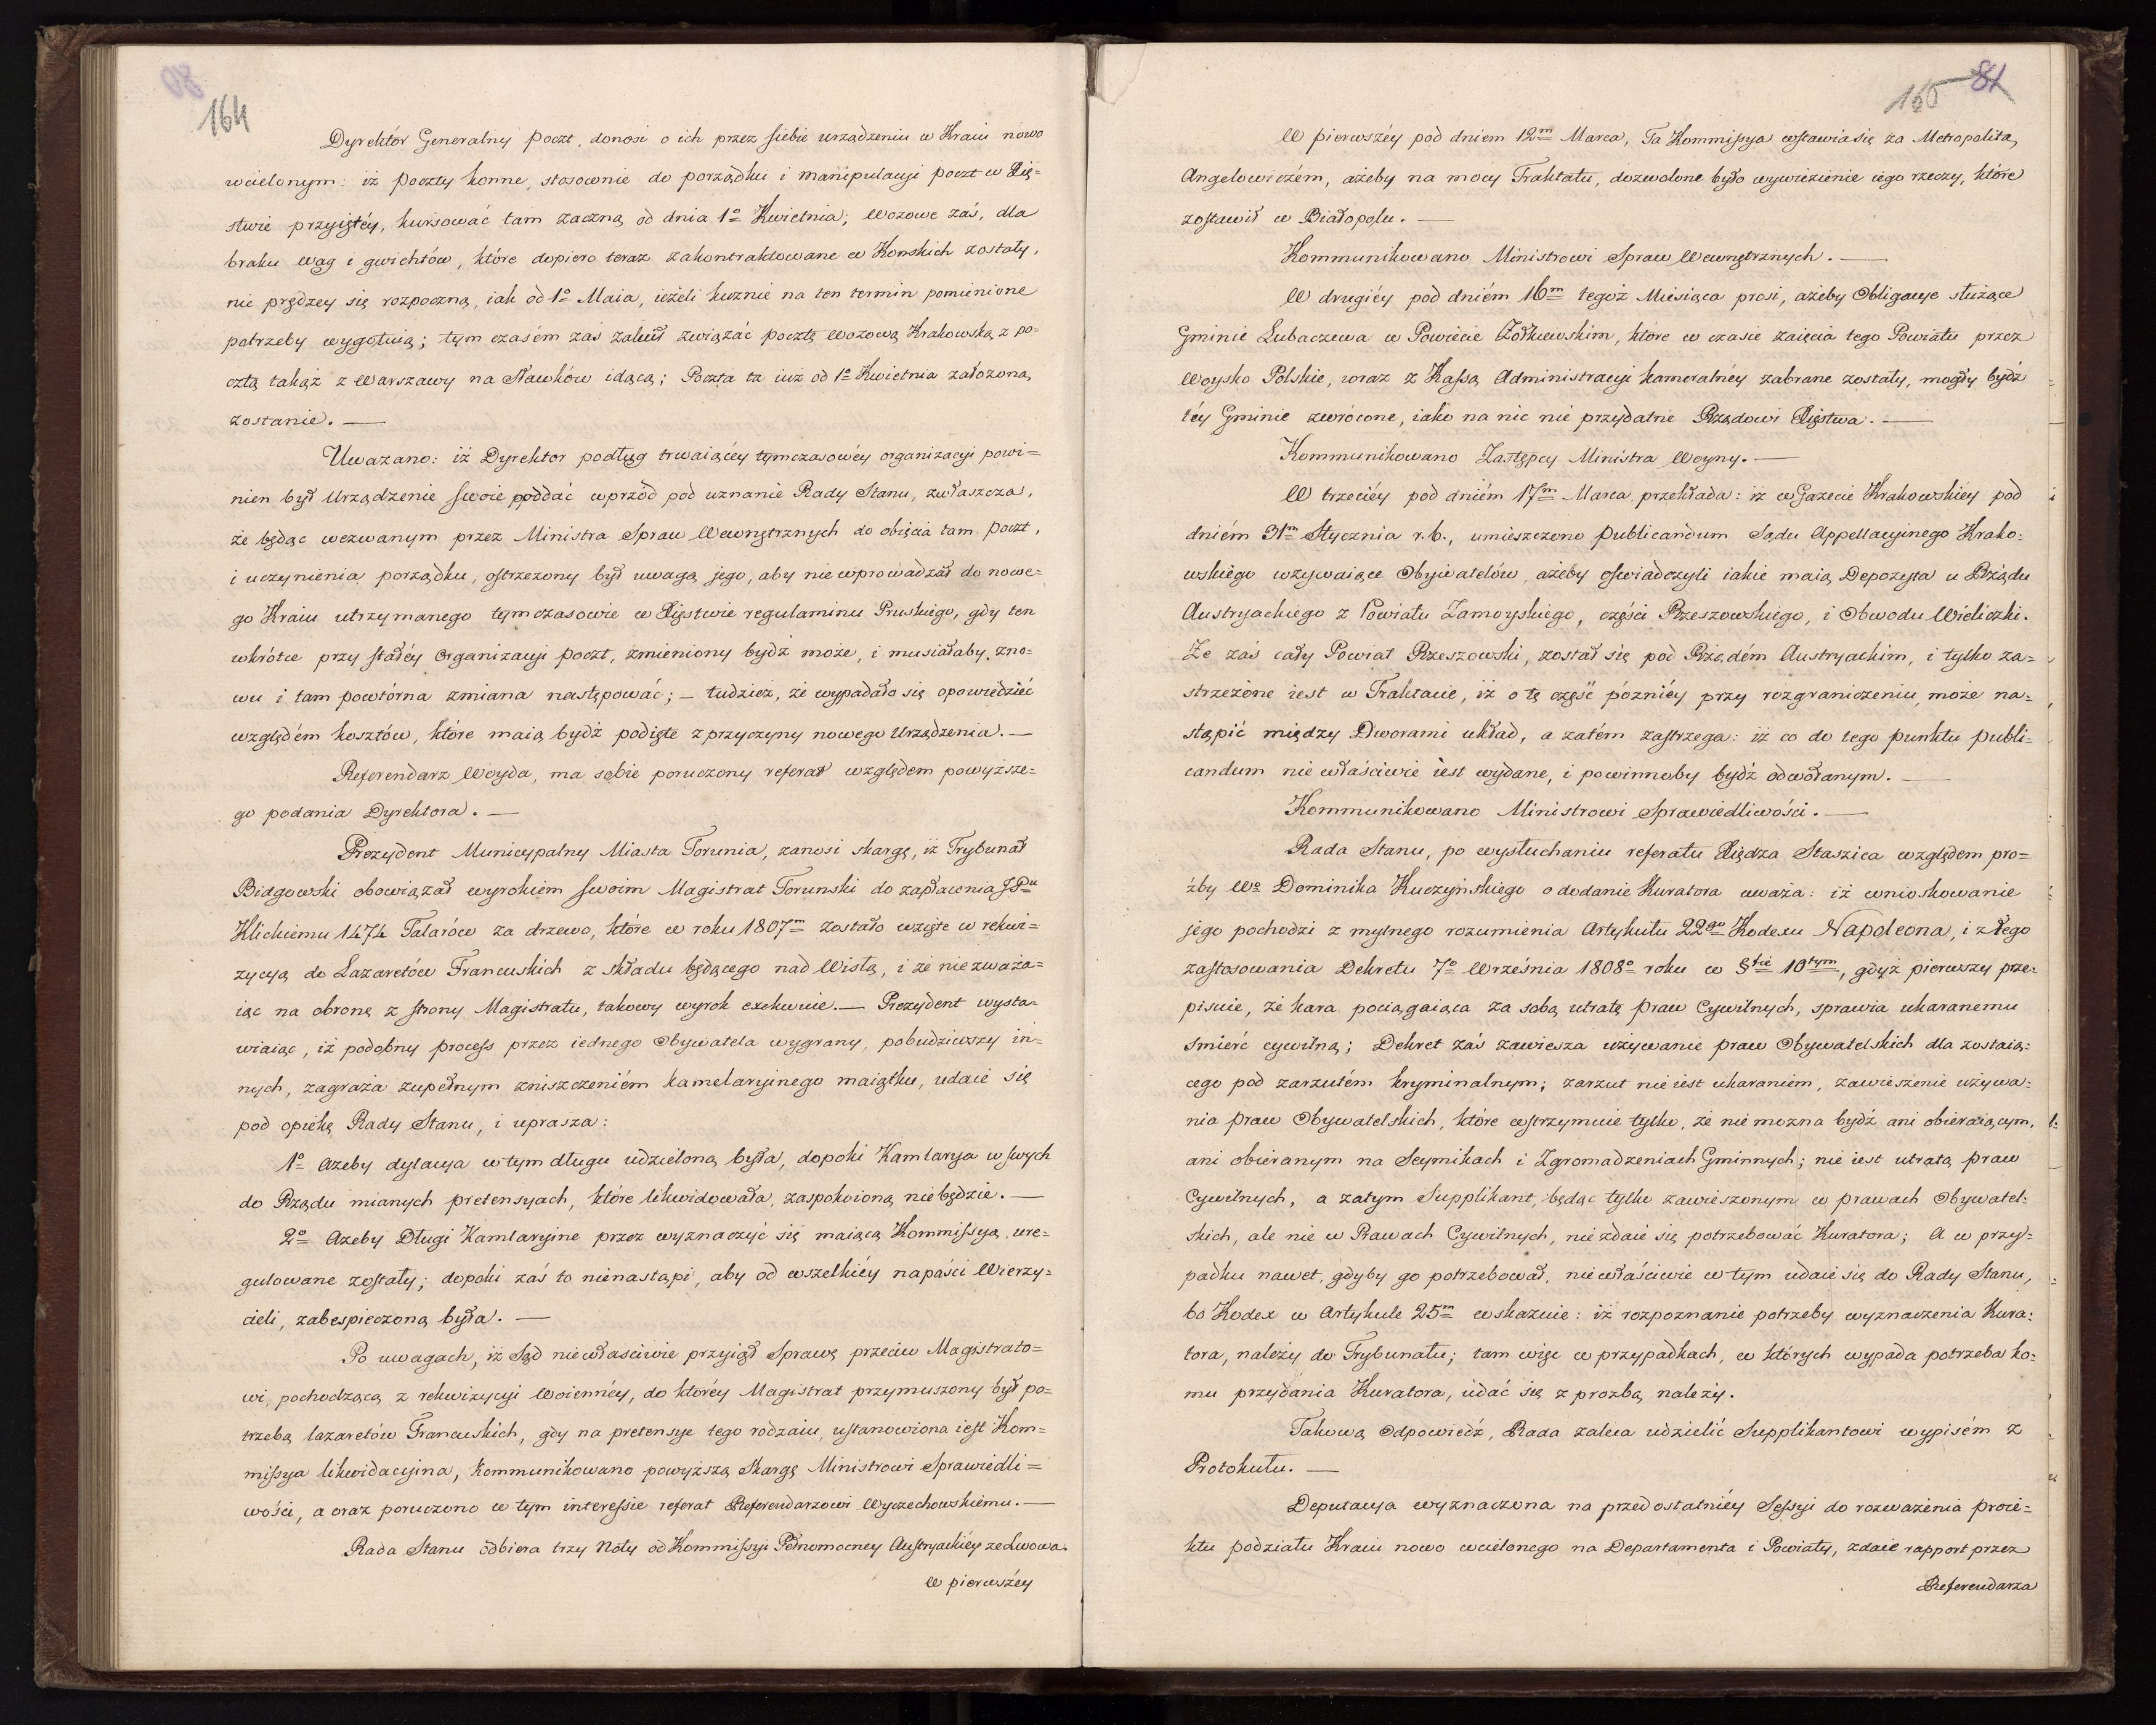 80
164
Dyrektór Generalny poczt, donosi o ich przez siebie urządzeniu w Kraiu nowo
wcielonym: iż poczty konne, stosownie do porządku i manipulacyi poczt w Xię=
stwie przyiętéy, kursować tam zaczną od dnia 1o Kwietnia; wozowe zaś, dla
braku wag i gwichtów, które dopiero teraz zakontraktowane w Konskich zostały,
nie prędzey się rozpoczną, iak od 1o Maia, ieżeli kuznie na ten termin pomienione
potrzeby wygotuią; tym czasém zaś zalecił związać pocztę wozową Krakowską z po=
cztą takąż z Warszawy na Nawków idącą; Poczta ta iuż od 1o Kwietnia założoną
zostanie. —
Uważano: iż Dyrektor podług trwaiącéy tymczasowéy organizacyi powi=
nien był Urządzenie swoie poddać wprzód pod uznanie Rady Stanu, zwłaszcza,
że będąc wezwanym przez Ministra Spraw Wewnętrznych do obięcia tam poczt,
i uczynienia porządku, ostrzeżony był uwagą jego, aby nie wprowadzał do nowe=
go Kraiu utrzymanego tymczasowie w Xięstwie regulaminu Pruskiego, gdy ten
wkrótce przy stałéy Organizacyi poczt, zmieniony bydź może, i musiałaby zno=
wu i tam powtórna zmiana następować; — tudzież, że wypadało się opowiedzieć
względém kosztów, które maią bydź podięte z przyczyny nowego Urządzenia. —
Referendarz Woyda, ma sobie poruczony referat względem powyższe=
go podania Dyrektora. —
Prezydent Municypalny Miasta Torunia, zanosi skargę, iż Trybunał
Bidgowski obowiązał wyrokiem swoim Magistrat Torunski do zapłacenia JPu
Klickiemu 1474 Talarów za drzewo, które w roku 1807m zostało wzięte w rekwi=
zycyą do Lazaretów Francuskich z składu będącego nad Wisłą, i że nie zważa=
iąc na obronę z strony Magistratu, takowy wyrok exekwuie. — Prezydent wysta=
wiaiąc, iż podobny process przez iednego Obywatela wygrany, pobudziwszy in=
nych, zagraża zupełnym zniszczeniém kamelaryinego maiątku, udaie się
pod opiekę Rady Stanu, i uprasza:
1o Ażeby dylacya w tym długu udzieloną była, dopoki Kamlarya w swych
do Rządu mianych pretensyach, które likwidowała, zaspokoioną niebędzie. —
2o Azeby Długi Kamlaryine przez wyznaczyć się maiącą Kommissyą ure=
gulowane zostały; dopoki zaś to nienastąpi, aby od wszelkiéy napaści Wierzy=
cieli, zabespieczoną była. —
Po uwagach, iż Sąd niewłasciwie przyiął Sprawę przeciw Magistrato=
wi, pochodzącą z rekwizycyi woiennéy, do któréy Magistrat przymuszony był po=
trzebą lazaretów Francuskich, gdy na pretensye tego rodzaiu, ustanowiona iest Kom=
missya likwidacyina, kommunikowano powyższą Skargę Ministrowi Sprawiedli=
wości, a oraz poruczono w tym interessie referat Referendarzowi Wyczechowskiemu. —
Rada Stanu odbiera trzy Noty od Kommissyi Pełnomocney Austryackiéy ze Lwowa.
W pierwszéy
165 81
W pierwszéy pod dniem 12m Marca, Ta Kommissya wstawia się za Metropolitą
Angelowiczém, ażeby na mocy Traktatu, dozwolone było wywiezienie iego rzeczy, które
zostawił w Białopolu. —
Kommunikowano Ministrowi Spraw Wewnętrznych. —
W drugiéy pod dniém 16m tegoż Miesiąca prosi, ażeby Obligacye służące
Gminie Lubaczewa w Powiecie Żołkiewskim, które w czasie zaięcia tego Powiatu przez
Woysko Polskie, wraz z Kassą Administracyi kameralnéy zabrane zostały, mogły bydź
téy Gminie zwrócone, iako na nic nie przydatne Rządowi Xięstwa. —
Kommunikowano Zastępcy Ministra Woyny. —
W trzeciéy pod dniém 17m Marca przekłada: iż w Gazecie Krakowskiey pod
dniém 31m Stycznia r. b., umieszczono publicandum Sądu Appellacyinego Krako=
wskiego wzywaiące Obywatelów, ażeby oświadczyli iakie maią Depozyta u Rządu
Austryackiego z Powiatu Zamoyskiego, części Rzeszowskiego, i Obwodu Wieliczki.
Że zaś cały Powiat Rzeszowski, został się pod Rządém Austryackim, i tylko za=
strzeżone iest w Traktacie, iż o tę część pózniéy przy rozgraniczeniu, może na=
stąpić między Dworami układ, a zatém zastrzega: iż co do tego punktu publi=
candum nie właściwie iest wydane, i powinnoby bydź odwołanym. —
Kommunikowano Ministrowi Sprawiedliwości. —
Rada Stanu, po wysłuchaniu referatu Xiędza Staszica względem pro=
źby Wo Dominika Kuczyńskiego o dodanie Kuratora uważa: iż wnioskowanie
jego pochodzi z mylnego rozumienia Artykułu 22go Kodexu Napoleona, i złego
zastosowania Dekretu 7o Września 1808o roku w §cie 10tym, gdyż pierwszy prze=
pisuie, że kara pociągaiąca za sobą utratę praw Cywilnych, sprawia ukaranemu
śmierć cywilną; Dekret zaś zawiesza używanie praw Obywatelskich dla zostaią=
cego pod zarzutém kryminalnym; zarzut nie iest ukaraniem, zawieszenie używa=
nia praw Obywatelskich, które wstrzymuie tylko, że nie mozna bydź ani obieraiącym,
ani obieranym na Seymikach i Zgromadzeniach Gminnych; nie iest utratą praw
Cywilnych, a zatym Supplikant, będąc tylko zawieszonym w prawach Obywatel=
skich, ale nie w Prawach Cywilnych, nie zdaie się potrzebować Kuratora; A w przy=
padku nawet, gdyby go potrzebował, niewłaściwie w tym udaie się do Rady Stanu,
bo Kodex w Artykule 25m wskazuie: iż rozpoznanie potrzeby wyznaczenia Kura=
tora, należy do Trybunału; tam więc w przypadkach, w których wypada potrzeba ko=
mu przydania Kuratora, udać się z prozbą należy.
Takową Odpowiedź, Rada zaleca udzielić Supplikantowi wypisém z
Protokułu. —
Deputacya wyznaczona na przedostatniéy Sessyi do rozważenia proie=
ktu podziału Kraiu nowo wcielonego na Departamenta i Powiaty, zdaie rapport przez
Referendarza